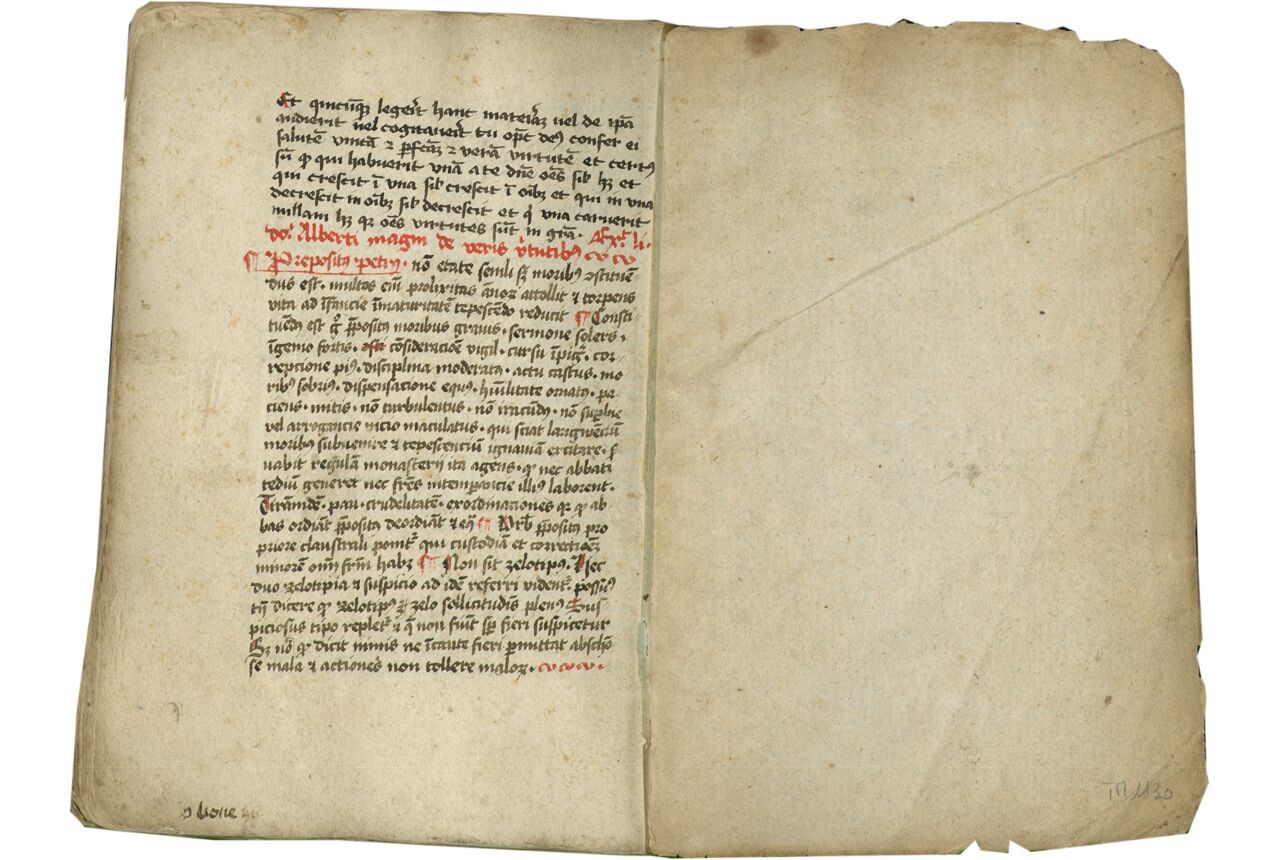 Et quicūqꝫ legerit hanc materiaꝫ uel de ip̄a
audierit uel cogitauerit tu op̄c deꝰ confer ei
salutē vnicā ⁊ ꝑfcāꝫ ⁊ verā virtutē et certꝰ
sū ꝙ qui habuerit vnā a te dn̄e oēs sil̄ hꝫ et
qui crescit ī vna sil̄ crescit ī oībꝫ et qui in vna
decrescit in oībꝫ sil̄ decrescit et q̇ vna caruerit
nullam hꝫ qꝛ oēs virtutes sūt in gr̄a. Exᵗ li.
doⁱ. Alberti magni de veris v̓tutibꝰ
¶ Prepositꝰ petrꝰ. nō etate senili sꝫ moribꝰ ꝯstituē-
dus est. multos em̄ prolixitas ānoꝝ attollit ⁊ torpens
vita ad īfancie īmaturitatē tepescēdo reducit ¶ Consti-
tuēdꝰ est gͦ p̄positꝰ moribus grauis. sermone solers.
īgenio fortis. cōsideracioē vigil. cursu īpigᵉʳ. cor-
repcione piꝰ. disciplina moderatꝰ. actu castus. mo
ribꝰ sobriꝰ. dispensacione equꝰ. hūilitate ornatꝰ. pa-
ciens. mitis. nō turbulentus. nō iracūdꝰ. nō suꝑbie
vel arrogancie uicio maculatus. qui sciat langwenciū
moribꝰ subuenire ⁊ tepescenciū ignauiā excitare. s̓
uabit regulā monasterij ita agens. ꝙ nec abbati
tediū generet nec fr̄es intemꝑancie illiꝰ laborent.
Tirānidē. pau. crudelitatē. exordinaciones qꝛ ꝙ ab
bas ordīat p̄positꝰ deordīat ⁊ eqͣ ¶ p̄positꝰ pro
priore claustrali ponitᵘʳ qui custodiā et correctioēꝫ
minorem oīm frm̄ habꝫ ¶ Non sit zelotipꝰ. Hec
duo zelotipia ⁊ suspicio ad idē referri videntᵘʳ. possumꝰ
tn̄ dicere ꝙ zelotipꝰ zelo sollicitudīs plenꝰ Sus-
piciosus tipo repletᵘˢ ⁊ q̄ non fiūt suspicetur
Sꝫ nō ꝙ dicit nimis ne īcaute fieri ꝑmittat
se mala ⁊ actiones non tollere maloꝝ.
TM 1130